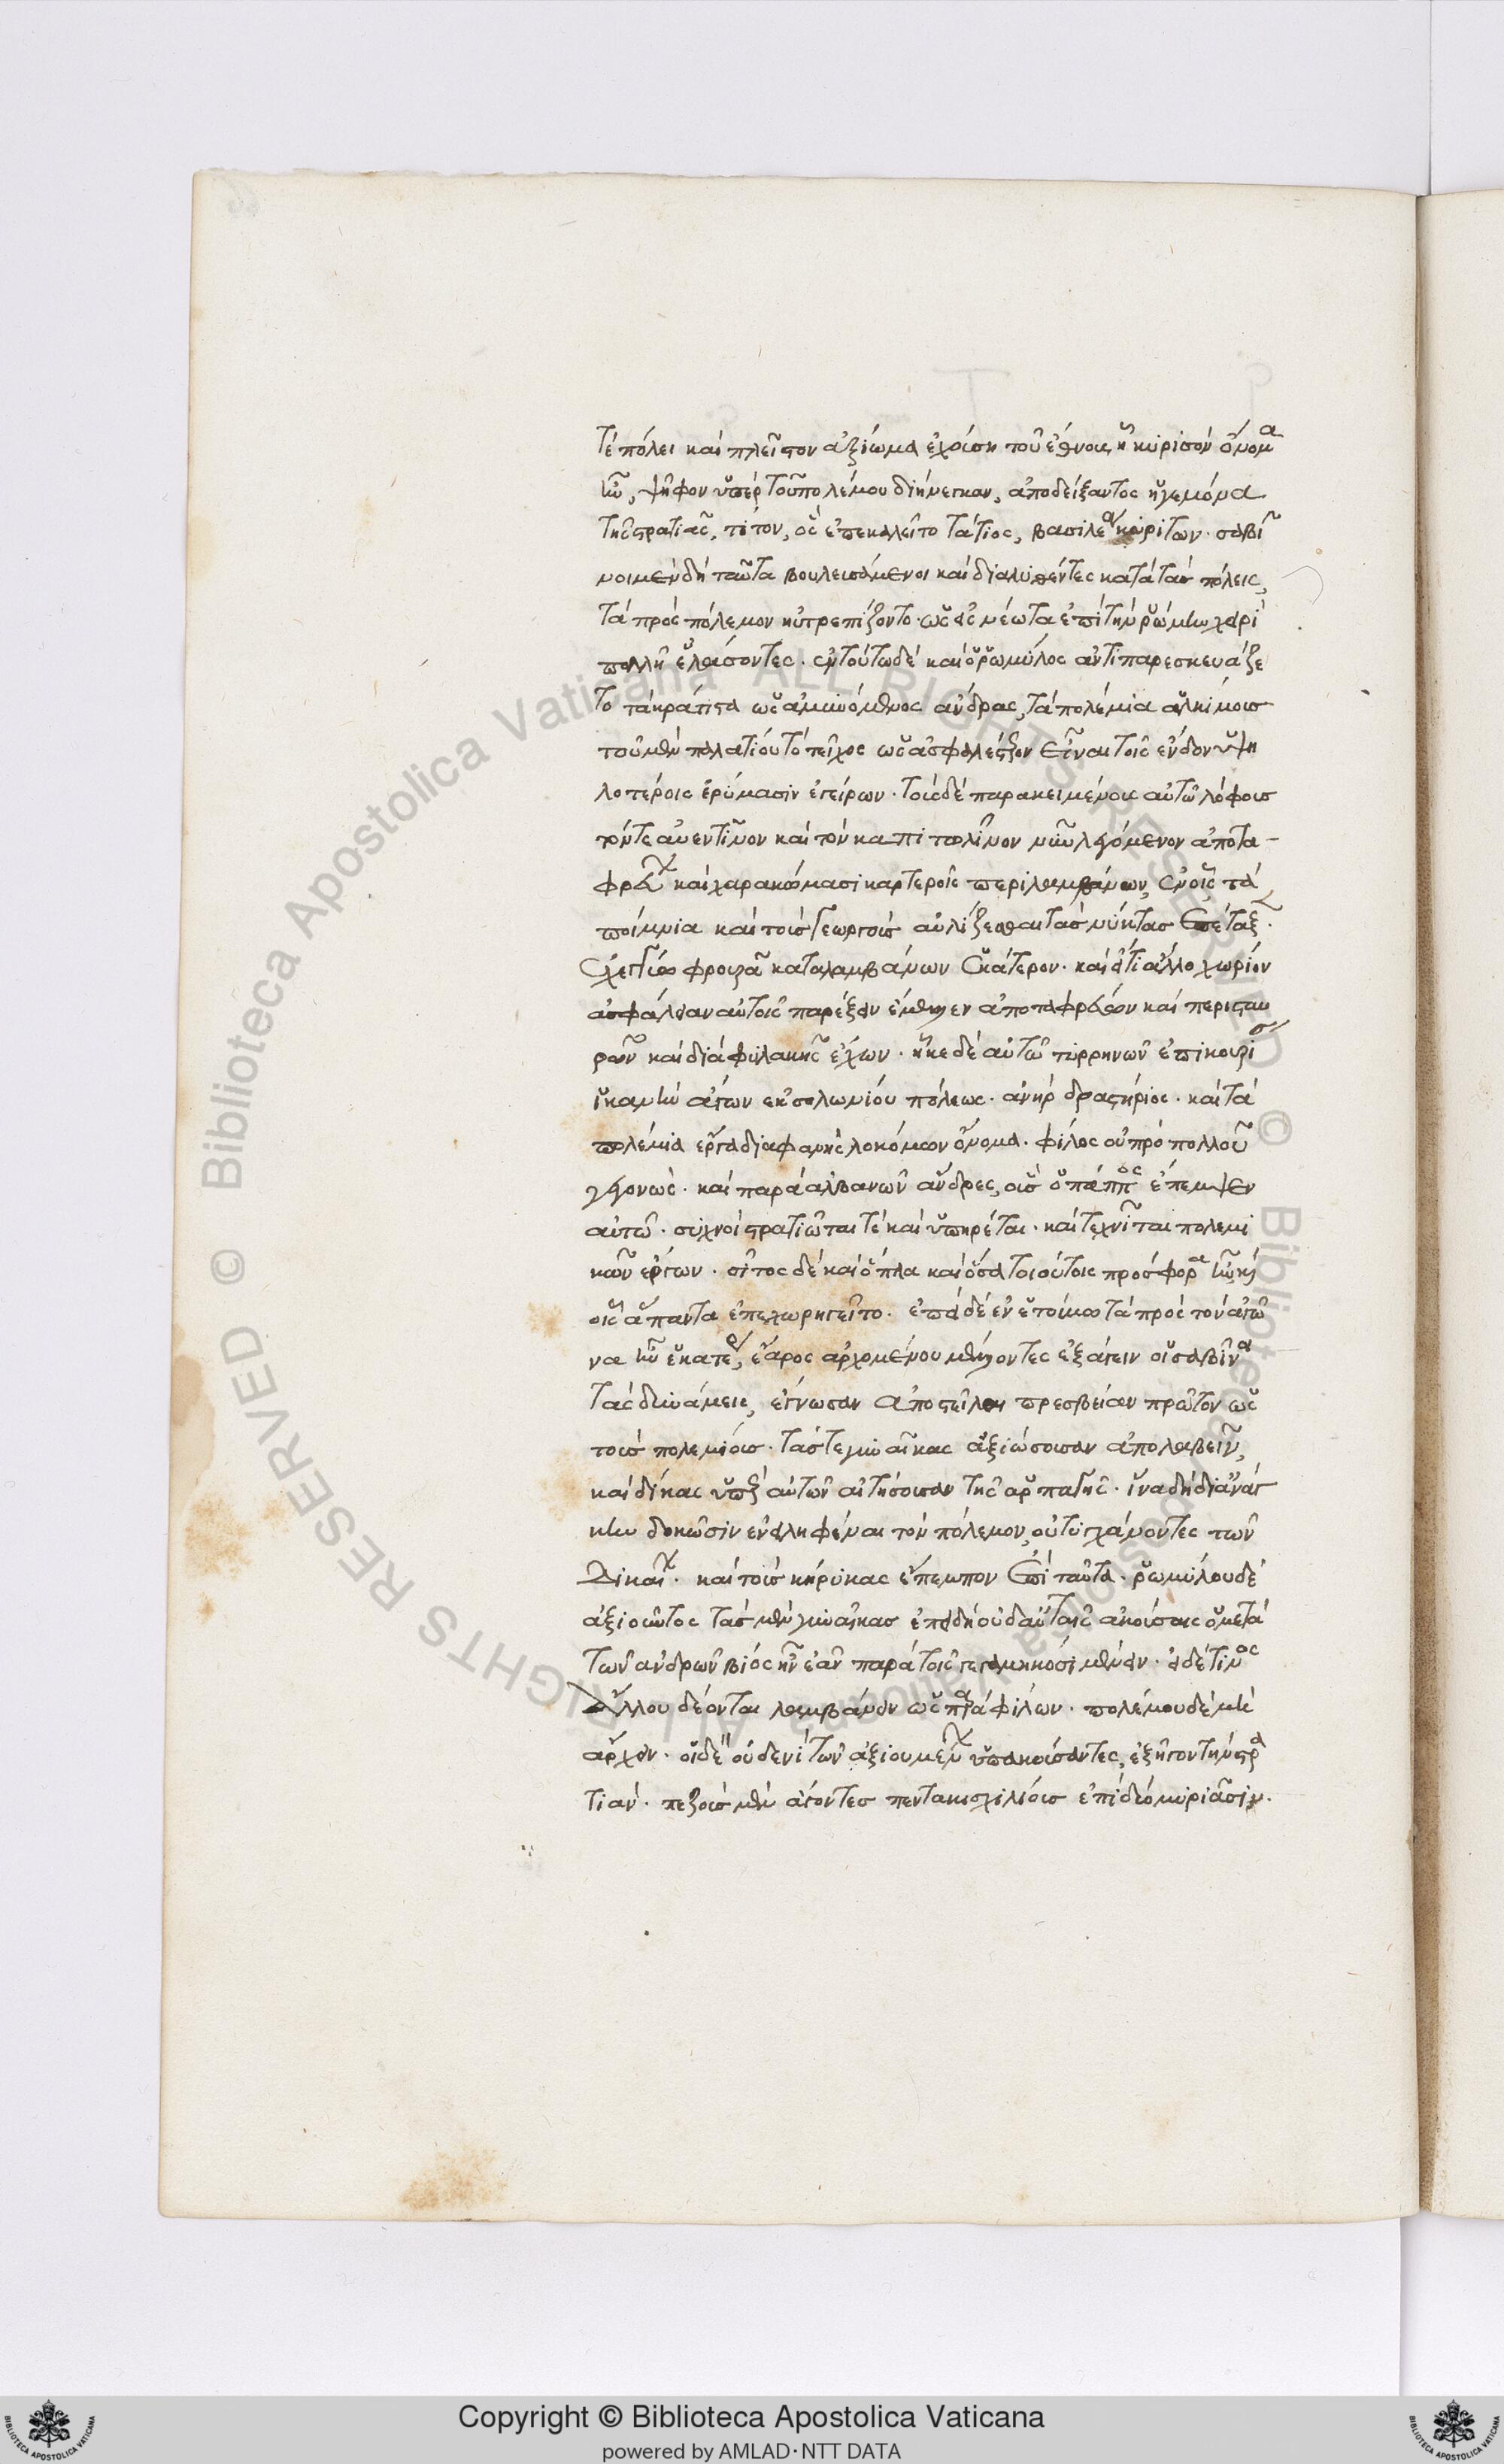 τέ πόλει καὶ πλεῖστον ἀξίωμα ἐχούση τοῦ ἔθνους ἧ κύρισον ὄνομα
ἦν, ψῆφον ὑπὲρ τοῦ πολέμου διήνεγκαν, ἀποδείξαντος ἡγεμόνα
τῆς στρατιᾶς, τίτον, ὃς ἐπεκαλεῖτο τάτιος, βασιλέα κυριτῶν. σαβῖ
νοι μὲν δὴ ταῦτα βουλευσάμενοι καὶ διαλυθέντες κατὰ τὰς πόλεις,
τὰ πρὸς πόλεμον ηὐτρεπίζοντο. ὡς ἐς νέωτα ἐπὶ τὴν ῥώμην χειρὶ
πολλῆ ἐλάσοντες. ἐν τούτω δὲ καὶ ὁ ῥωμύλος ἀντιπαρεσκευάζε
το τὰ κράτιστα ὡς ἀμυνόμενος ἄνδρας, τὰ πολέμια ἀλκίμους
τοῦ μὲν παλατίου τὸ τεῖχος ὡς ἀσφαλέστερον εἶναι τοῖς ἔνδον ὑψη
λοτέροις ἐρύμασιν ἐγείρων. τοὺς δὲ παρακειμένους αὐτῶ λόφους
τόν τε ἀυεντῖνον καὶ τὸν καπιτωλῖνον νῦν λεγόμενον ἀποτα-
φρεύων καὶ χαρακώμασι καρτεροῖς περιλαμβάνων, ἐν οἷς τὰ
ποίμνια καὶ τοὺς γεωργοὺς αὐλίζεσθαι τὰς νύκτας ἐπέταξεν.
ἐχεγγύω φρουρᾶ καταλαμβάνων ἑκάτερον. καὶ εἴ τι ἄλλο χωρίον
ἀσφάλειαν αὐτοῖς παρέξειν ἔμελλεν ἀποταφρεύων καὶ περισταυ
ρῶν καὶ διὰ φυλακῆς ἔχων. ἧκε δὲ αὐτῶ τυρρηνῶν ἐπικουρί
ἱκανὴν ἄγων ἐκ σολωνίου πόλεως. ἀνὴρ δραστήριος. καὶ τὰ
πολέμια ἔργα διαφανὴς λοκόμων ὄνομα. φίλος οὐ πρὸ πολλοῦ
γεγονώς. καὶ παρὰ ἀλβανῶν ἄνδρες, οὓς ὁ πάππος ἔπεμψεν
αὐτῶ. συχνοὶ στρατιῶται τὲ καὶ ὑπηρέται. καὶ τεχνῖται πολεμι
κῶν ἔργων. σῖτος δὲ καὶ ὅπλα καὶ ὅσα τοιούτοις πρόσφορα ἦν καὶ
οἷς ἅπαντα ἐπεχωρηγεῖτο. ἐπεὶ δὲ ἐν ἑτοίμω τὰ πρὸς τὸν ἀγῶ
να ἦν ἑκατέρ, ἔαρος ἀρχομένου μέλλοντες ἐξάγειν οἱ σαβῖνοι
τὰς δυνάμεις, ἔγνωσαν ἀποστεῖλαι πρεσβείαν πρῶτον ὡς
τοὺς πολεμίους. τάς τε γυναῖκας ἀξιώσουσαν ἀπολαβεῖν,
καὶ δίκας ὑπὲρ αὐτῶν αἰτήσουσαν τῆς ἁρπαγῆς. ἵνα δὴ δι ἀνάγ
κην δοκῶσιν ἀνειληφέναι τὸν πόλεμον, οὐ τυγχάνοντες τῶν
δικαίων. καὶ τοὺς κήρυκας ἔπεμπον ἐπὶ ταῦτα. ῥωμύλου δὲ
ἀξιοῦντος τὰς μὲν γυναῖκας ἐπειδὴ οὐδ αὐταῖς ἀκούσαις ὁ μετὰ
τῶν ἀνδρῶν βίος ἦν ἐᾶν παρὰ τοῖς γεγαμηκόσι μένειν. εἰ δέ τινος
ἄλλου δέονται λαμβάνειν ὡς παρὰ φίλων. πολέμου δὲ μὴ
ἄρχειν. οἱ δὲ οὐδενὶ τῶν ἀξιουμένων ὑπακούσαντες, ἐξῆγον τὴν στρα
τιάν. πεζοὺς μὲν ἄγοντες πεντακισχιλίους ἐπὶ δυὸ μυριάσιν.
Copyright © Biblioteca Apostolica Vaticana
powered by AMLAD·NTT DATA